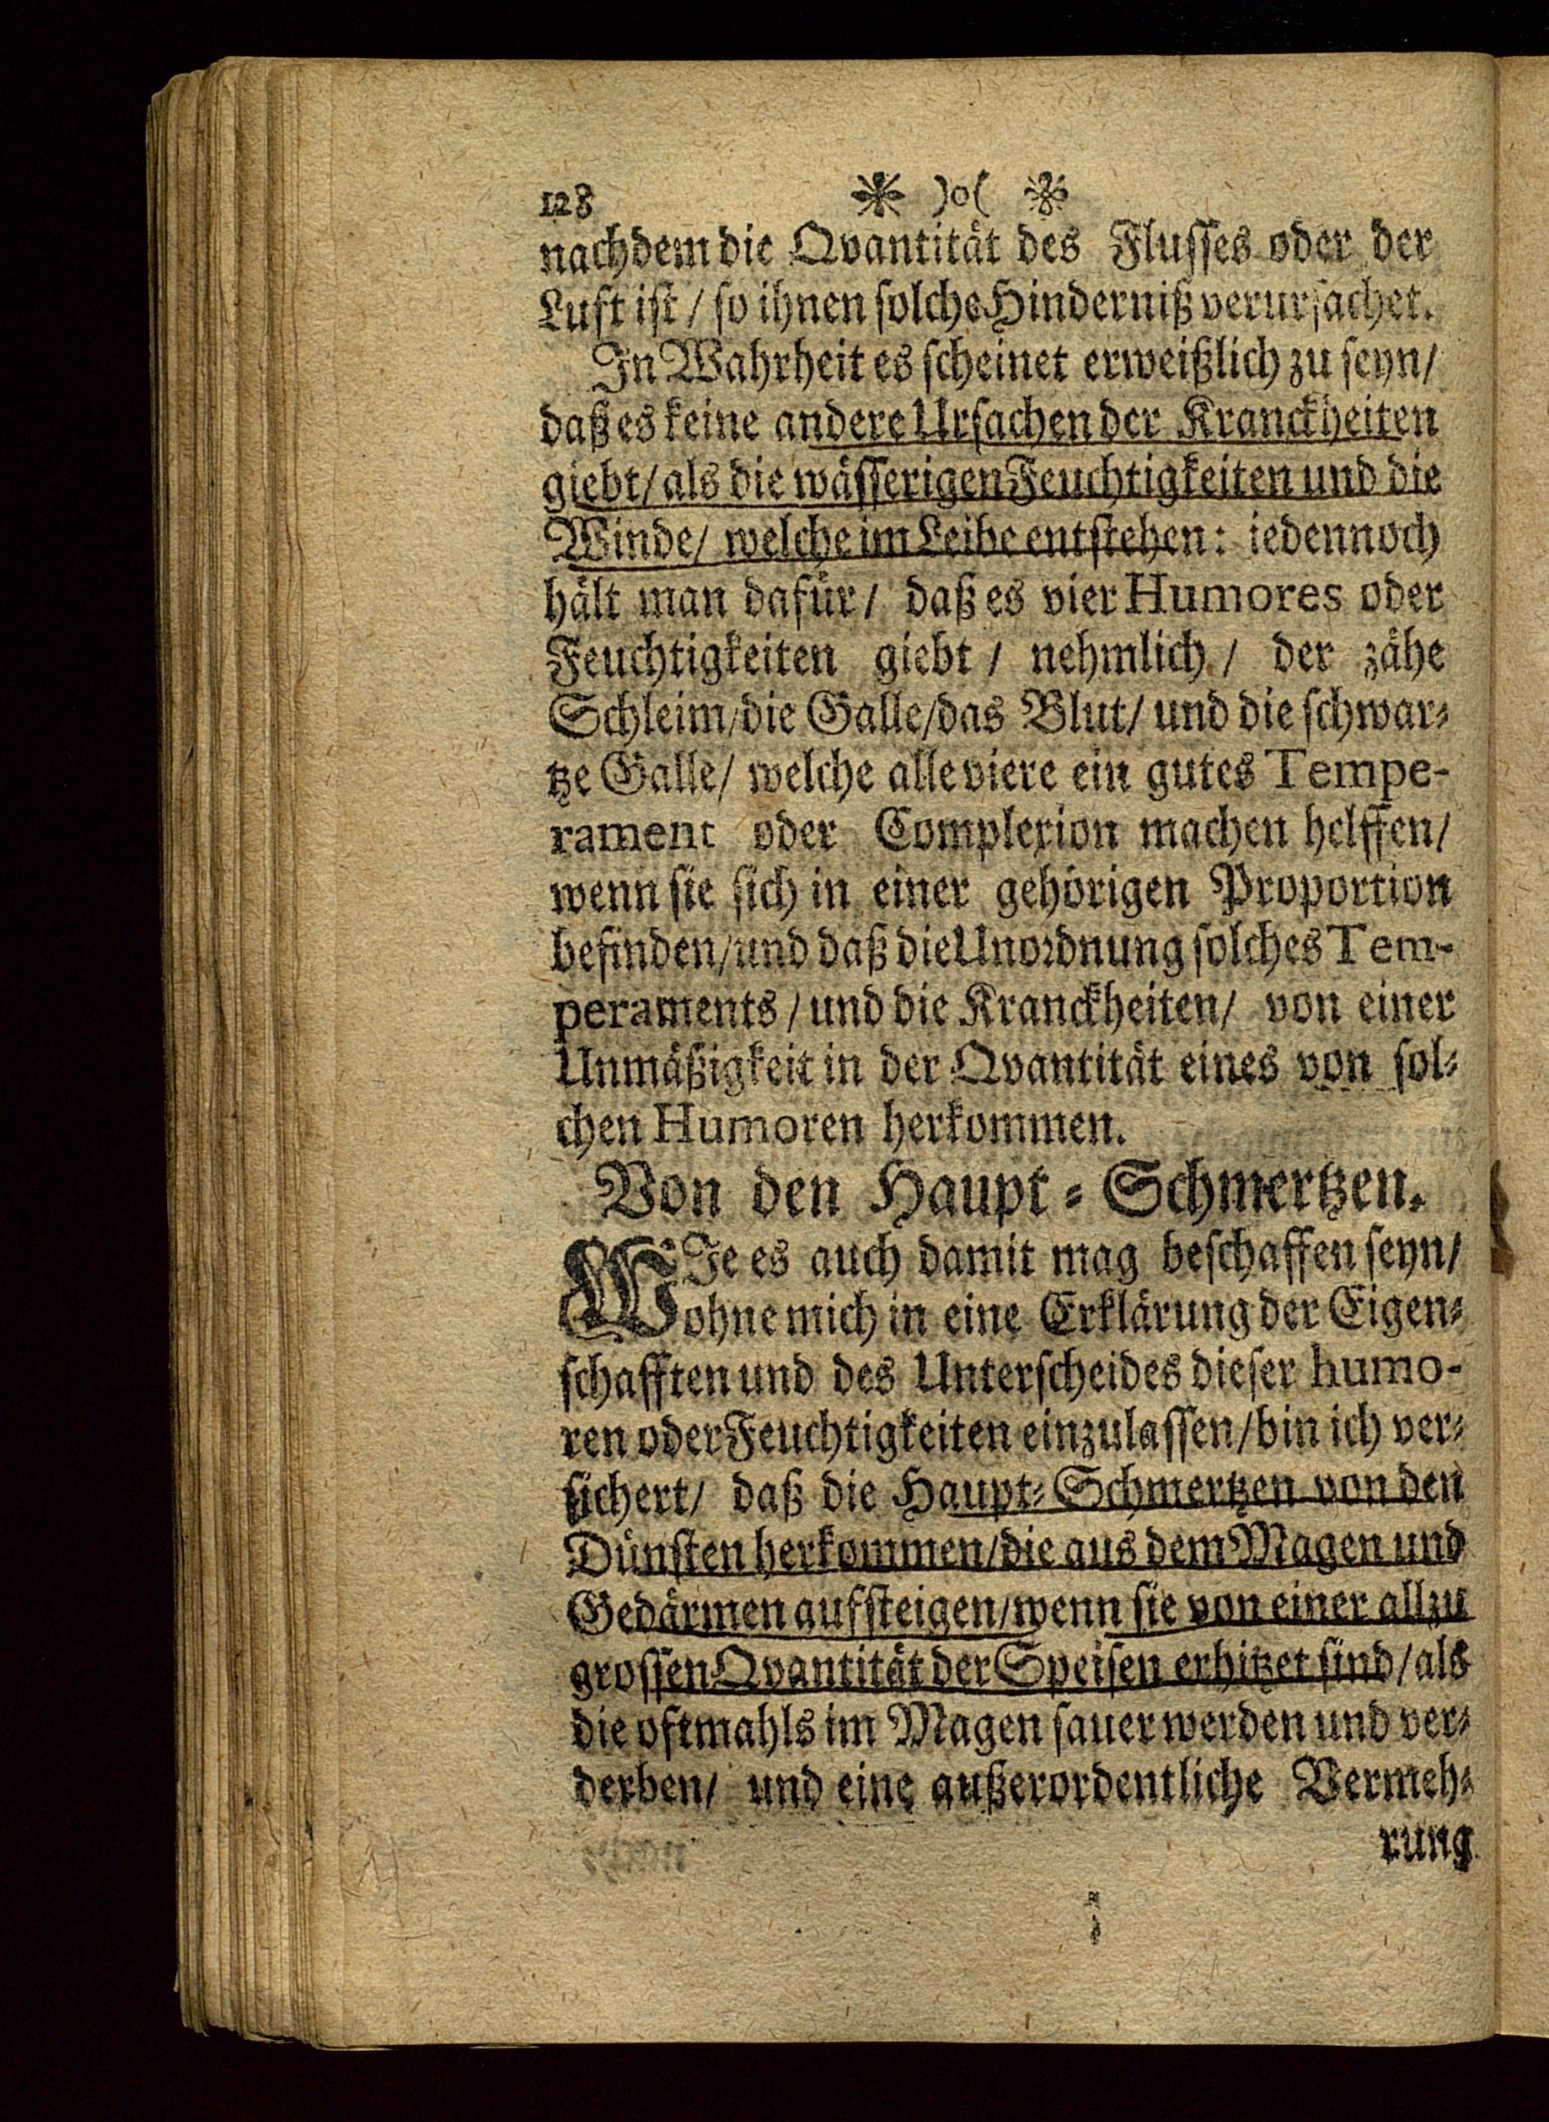 128 ✻ )o( ✻
nachdem die Qvantität des Flusses oder der
Luft ist / so ihnen solche Hinderniß verursachet.
In Wahrheit es scheinet erweißlich zu seyn/
daß es keine andere Ursachen der Kranckheiten
giebt/ als die wässerigen Feuchtigkeiten und die
Winde/ welche im Leibe entstehen: iedennoch
hält man dafür/ daß es vier Humores oder
Feuchtigkeiten giebt / nehmlich / der zähe
Schleim/die Galle/das Blut/ und die schwar-
tze Galle/ welche alle viere ein gutes Tempe-
rament oder Complexion machen helffen/
wenn sie sich in einer gehörigen Proportion
befinden/und daß die Unordnung solches Tem-
peraments / und die Kranckheiten/ von einer
Unmäßigkeit in der Qvantität eines von sol-
chen Humoren herkommen.
Von den Haupt-Schmertzen.
WJe es auch damit mag beschaffen seyn/
ohne mich in eine Erklärung der Eigen-
schafften und des Unterscheides dieser humo-
ren oder Feuchtigkeiten einzulassen/bin ich ver-
sichert/ daß die Haupt-Schmertzen von den
Dünsten herkommen/die aus dem Magen und
Gedärmen aufsteigen/wenn sie von einer allzu
grossen Qvantität der Speisen erhitzet sind/als
die oftmahls im Magen sauer werden und ver-
derben/ und eine außerordentliche Vermeh-
rung